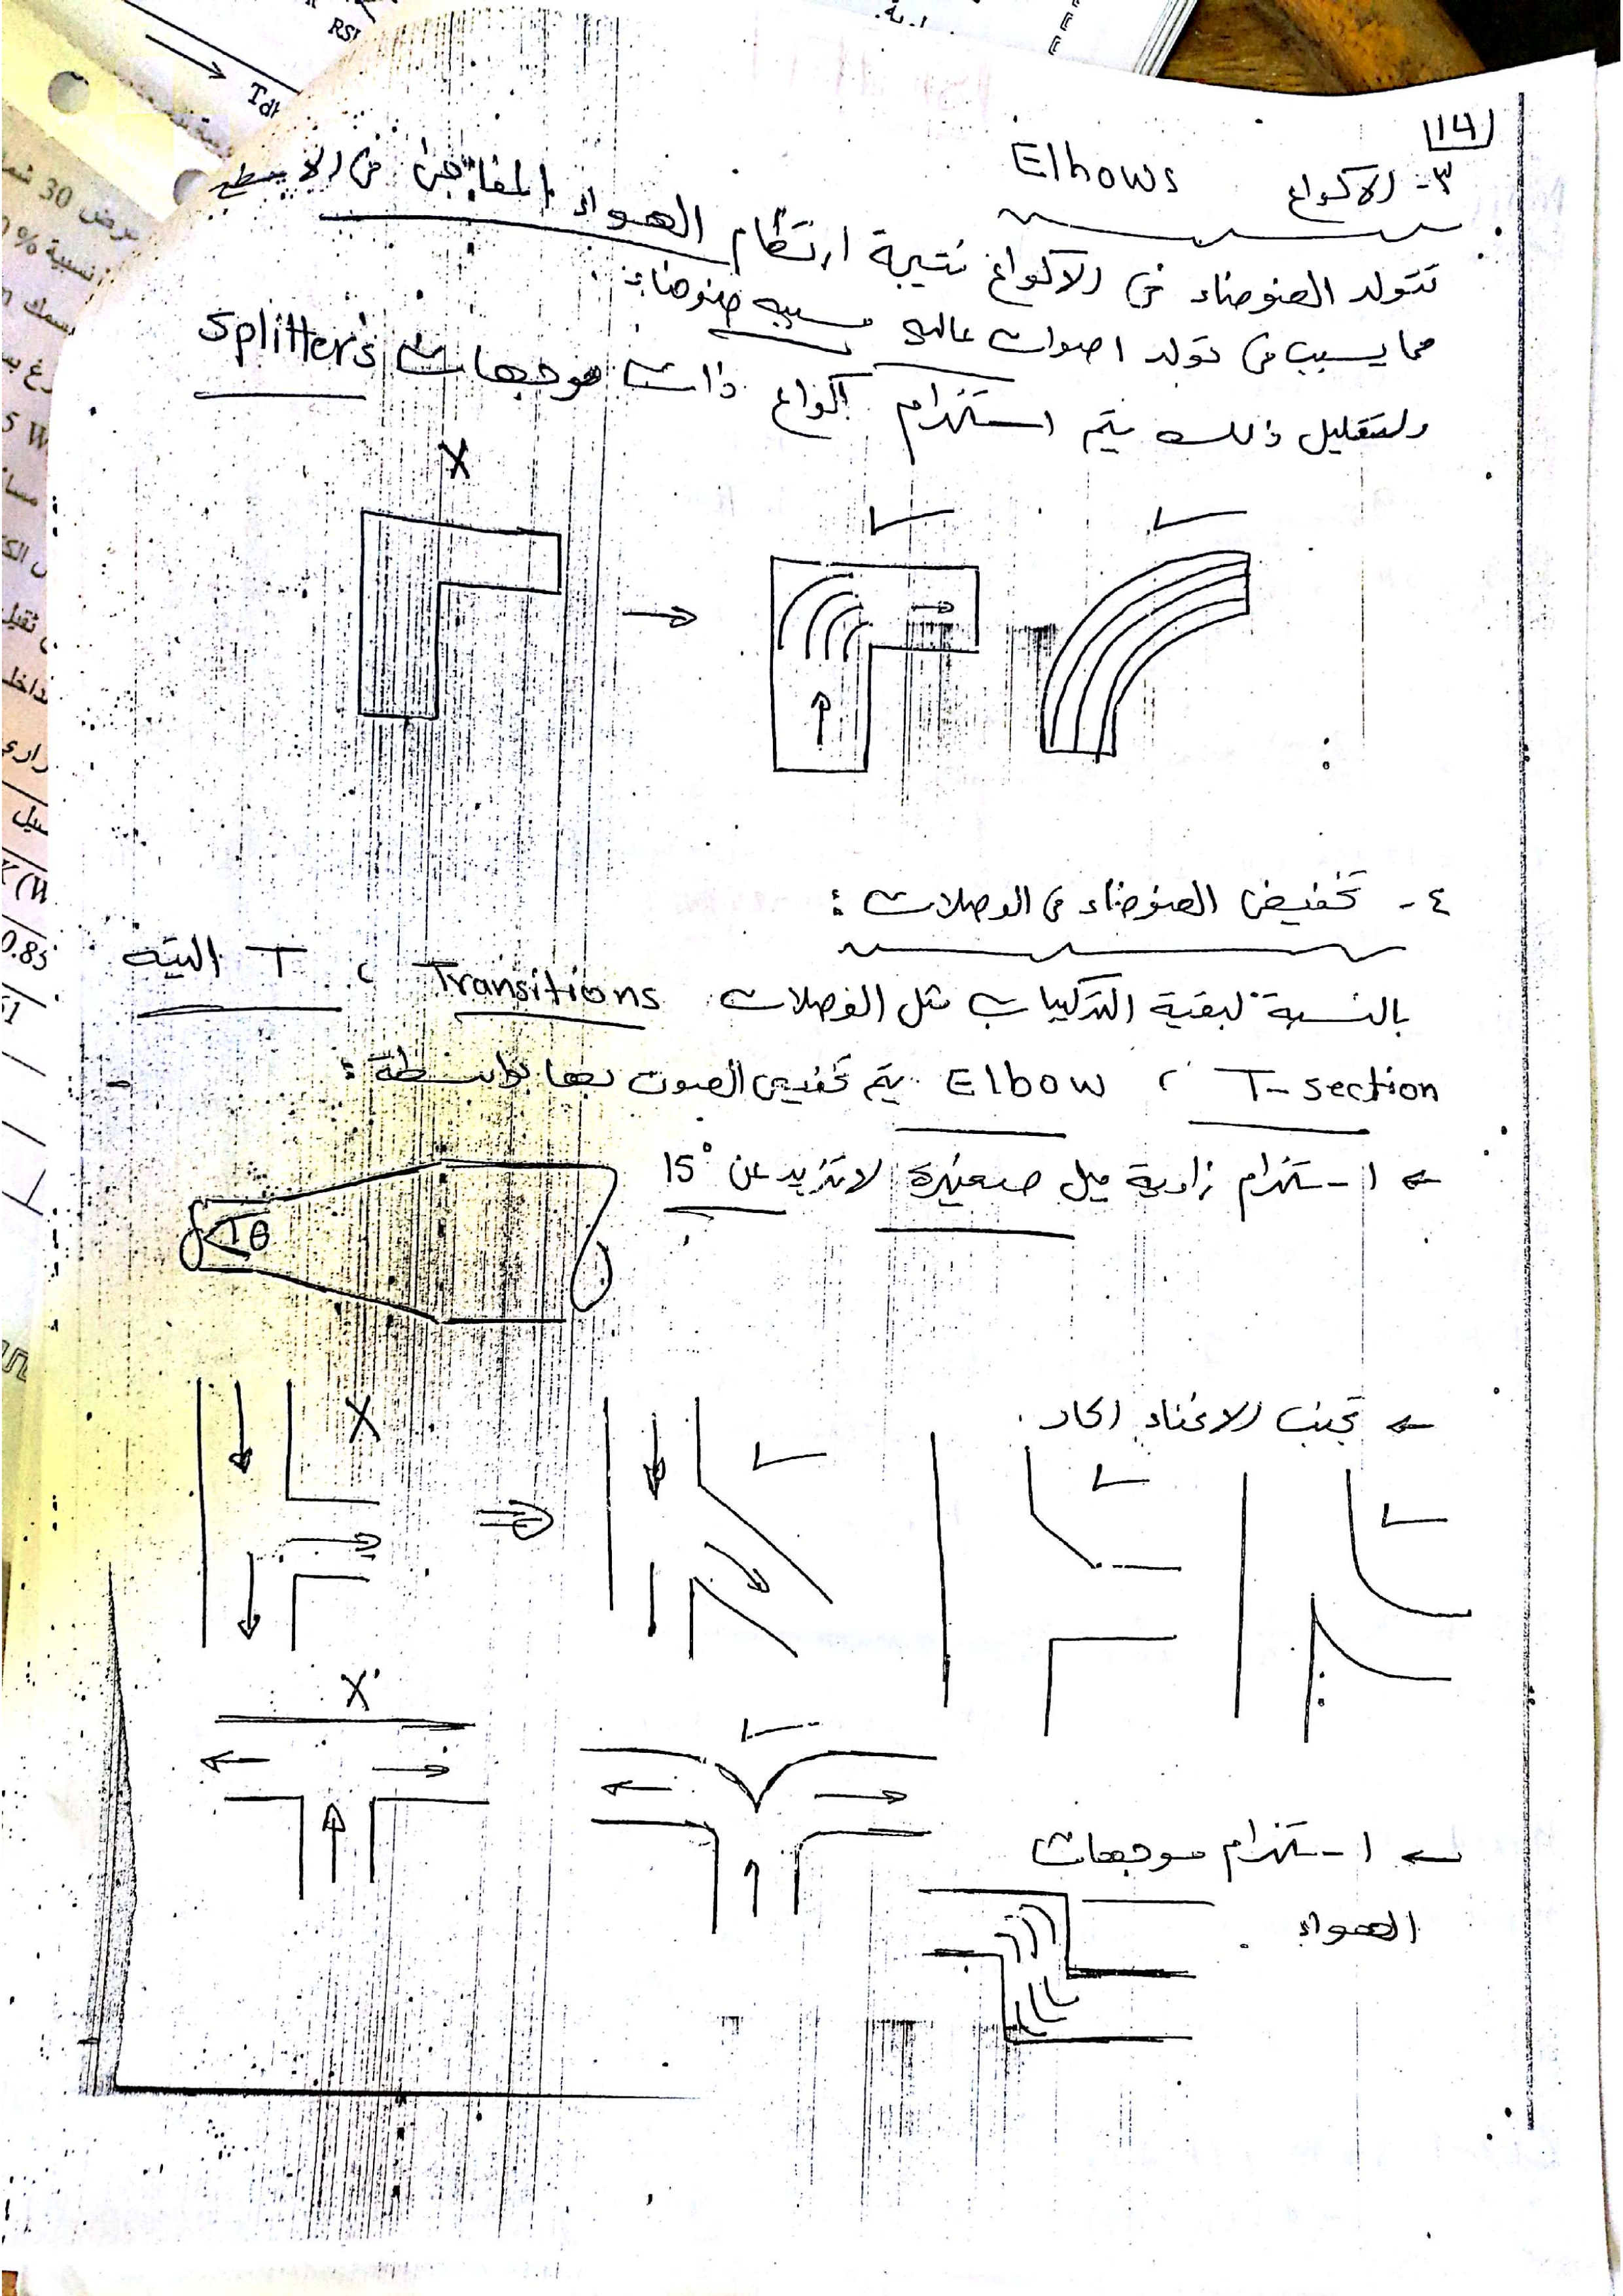 14
٣- الاكواع Elbows
تتولد الضوضاء في الاكواع نتيجة ارتطام الهواء المفاجئ في الاسطح
مما يسبب في تولد اصوات عالية مسببه ضوضاء.
ولتقليل ذلك يتم استخدام اكواع ذات موجهات Splitter's
X
٤- تخفيض الضوضاء في الوصلات :
بالنسبة لبقية التركيبات مثل الوصلات Transitions ، T التيه
T-section ، Elbow يتم تخفيض الصوت بها بواسطة :
← استخدام زاوية ميل صغيرة لا تزيد عن 15°
θ
← تجنب الانحناء الحاد .
X
X
← استخدام موجهات
الهواء .
RSH
Tdb
عرض 30
نسبة %
سمك
5 W
ثقيل
داخل
K (W
0.85